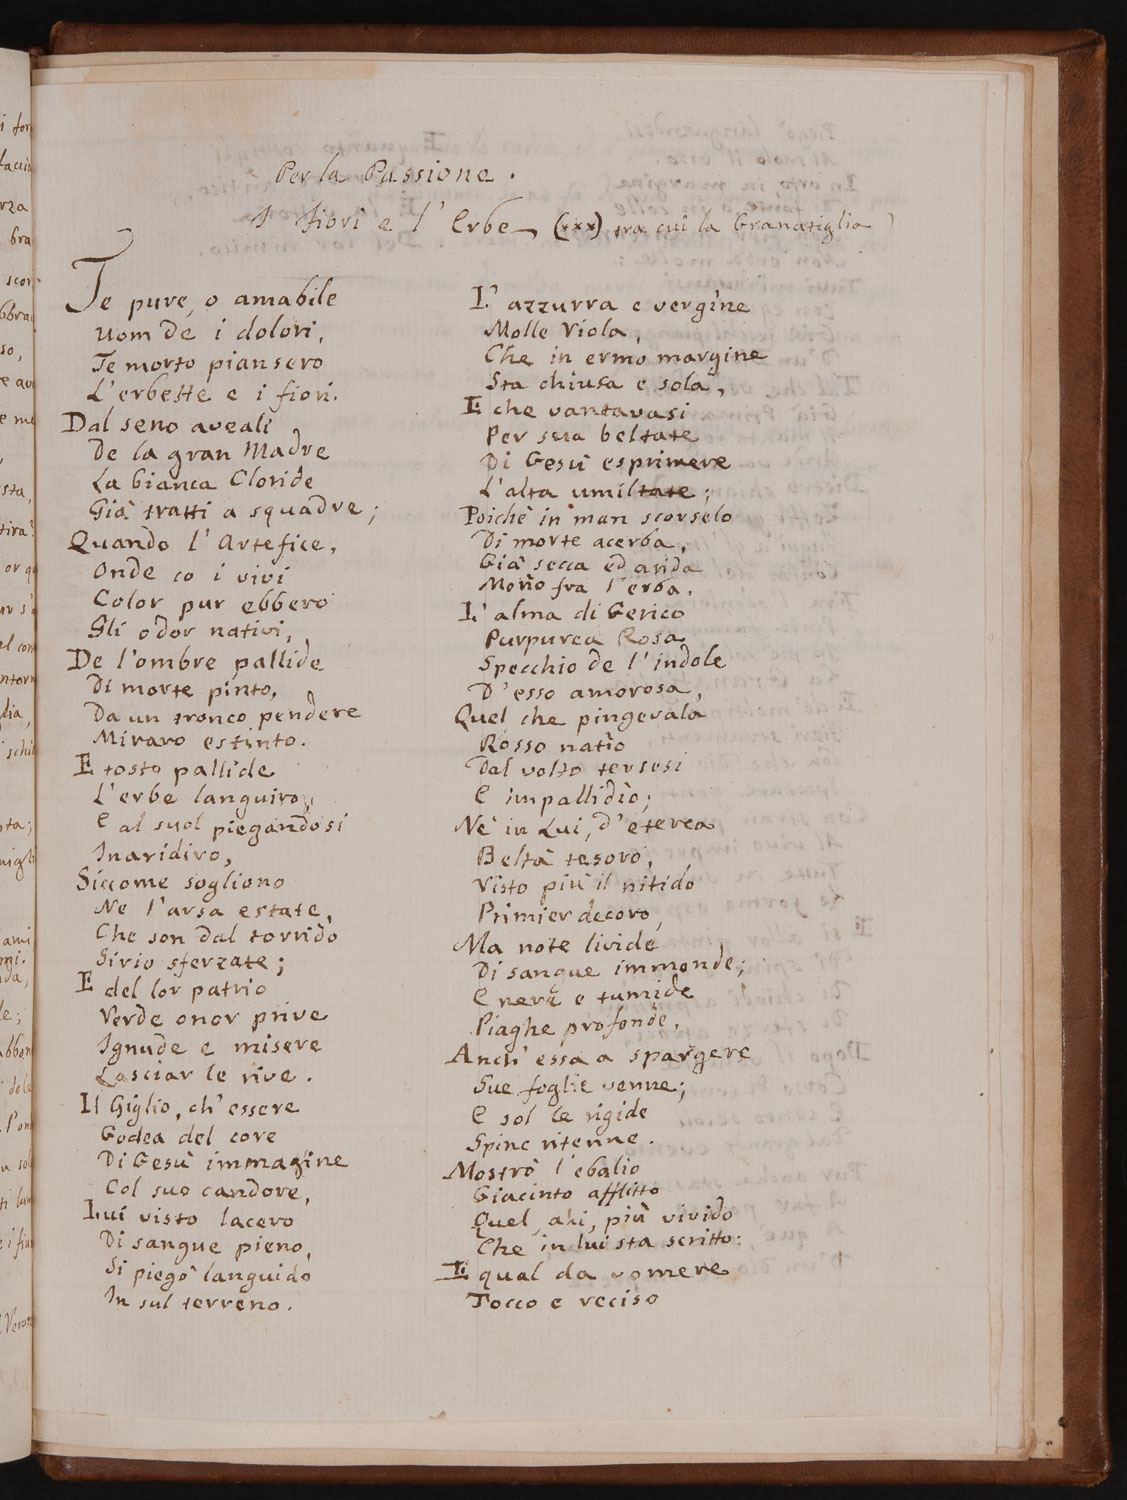 Per la Passione.
I fiori e l'Erbe, (xxx) tra cui la Granatiglia
Te pure, o amabile
Uom de i dolori,
Te morto piansero
L'erbette e i fiori.
Dal seno aveali
De la gran Madre
La bianca Cloride
Già tratti a squadre;
Quando l'Artefice,
Onde co i vivi
Color pur ebbero
Gli odor nativi,
De l'ombre pallide
Di morte pinto,
Da un tronco pendere
Miraro estinto.
E tosto pallide
L'erbe languiro,
E al suol piegandosi
Inaridiro,
Siccome sogliono
Ne l'arsa estate,
Che son dal torrido
Sirio sferzate;
E del lor patrio
Verde onor prive
Ignude e misere
Lasciar le rive.
Il Giglio, ch'essere
Godea del core
Di Gesù immagine
Col suo candore,
Lui visto lacero
Di sangue pieno,
Si piegò languido
In sul terreno.
L'azzurra e vergine
Molle Viola,
Che in ermo margine
Sta chiusa e sola,
E che vantavasi
Per sua beltate
Di Gesù esprimere
L'alta umiltate;
Poichè in man scorselo
Di morte acerba,
Già secca ed arida
Morìo fra l'erba.
L'alma di Gerico
Purpurea Rosa
Specchio de l'indole
D'esso amorosa,
Quel che pingevala
Rosso natìo
Dal volto tersesi
E impallidìo;
Nè in Lui, d'eterea
Beltà tesoro,
Visto più il nitido
Primier decoro,
Ma note livide
Di sangue immonde;
E nere e tumide
Piaghe profonde,
Anch'essa a spargere
Sue foglie venne;
E sol le rigide
Spine ritenne.
Mostrò l'ebalio
Giacinto afflitto
Quel ahi, più vivido
Che in lui sta scritto:
E qual da vomere
Tocco e reciso